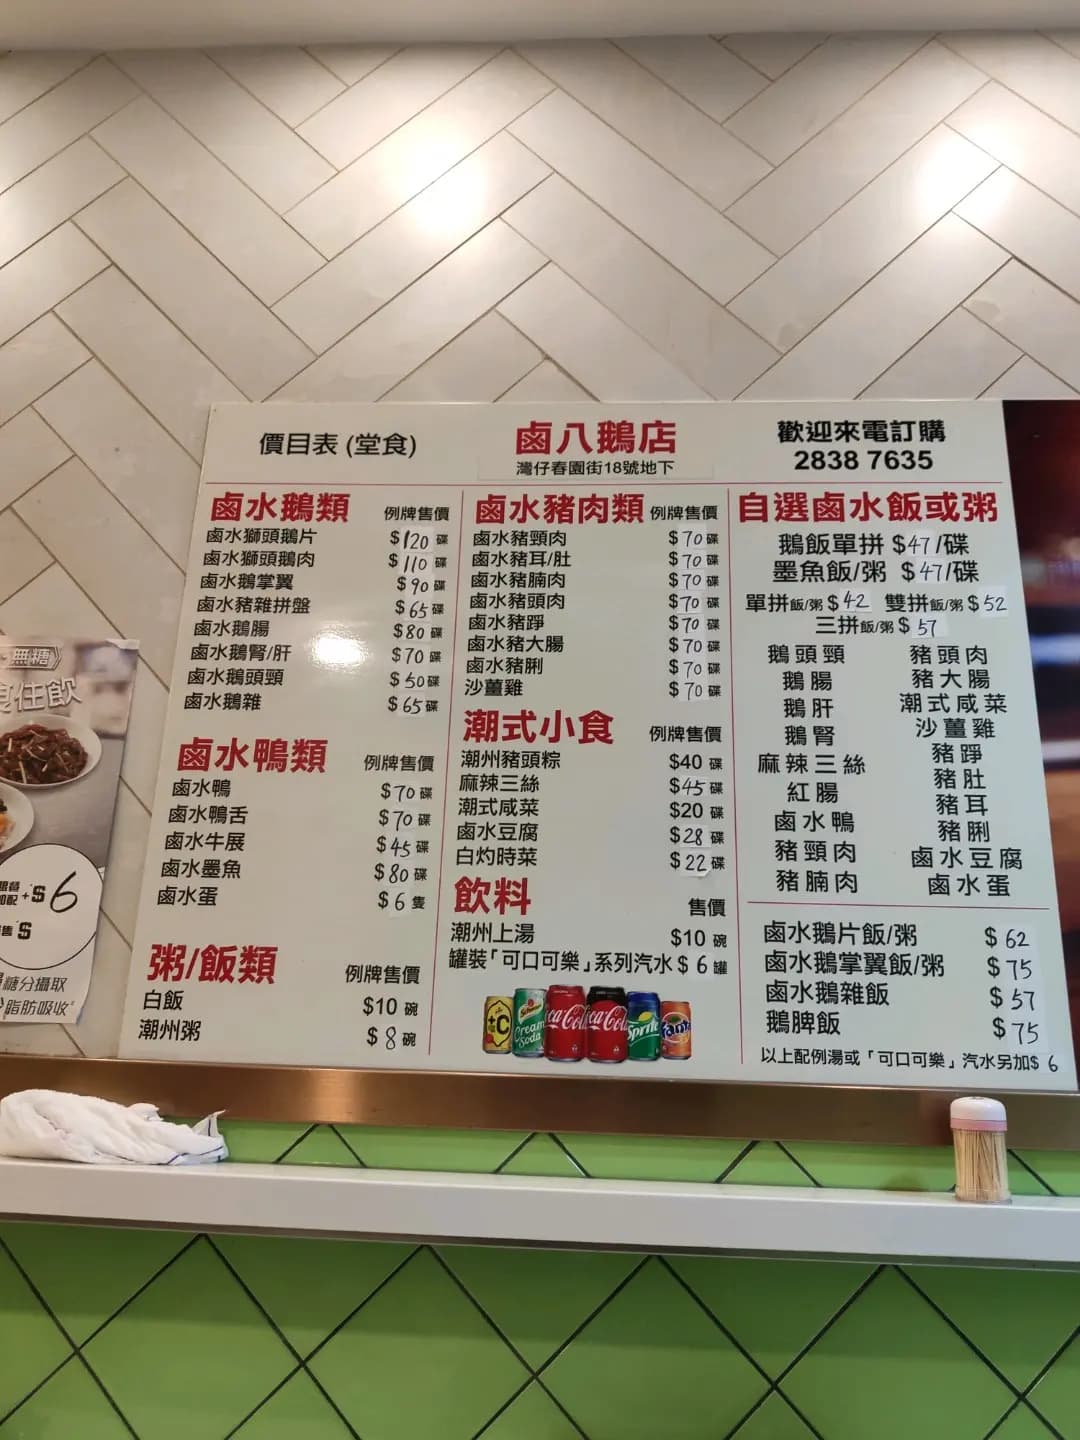 價目表 (堂食)
鹵八鵝店
灣仔春園街18號地下
歡迎來電訂購
2838 7635
鹵水鵝類 例牌售價
鹵水獅頭鵝片 $120 碟
鹵水獅頭鵝肉 $110 碟
鹵水鵝掌翼 $90 碟
鹵水豬雜拼盤 $65 碟
鹵水鵝腸 $80 碟
鹵水鵝腎/肝 $70 碟
鹵水鵝頭頸 $50 碟
鹵水鵝雜 $65 碟
鹵水鴨類 例牌售價
鹵水鴨 $70 碟
鹵水鴨舌 $70 碟
鹵水牛展 $45 碟
鹵水墨魚 $80 碟
鹵水蛋 $6 隻
粥/飯類 例牌售價
白飯 $10 碗
潮州粥 $8 碗
鹵水豬肉類 例牌售價
鹵水豬頸肉 $70 碟
鹵水豬耳/肚 $70 碟
鹵水豬腩肉 $70 碟
鹵水豬頭肉 $70 碟
鹵水豬踭 $70 碟
鹵水豬大腸 $70 碟
鹵水豬脷 $70 碟
沙薑雞 $70 碟
潮式小食 例牌售價
潮州豬頭粽 $40 碟
麻辣三絲 $45 碟
潮式咸菜 $20 碟
鹵水豆腐 $28 碟
白灼時菜 $22 碟
飲料 售價
潮州上湯 $10 碗
罐裝「可口可樂」系列汽水 $6 罐
+C
Schweppes
Cream Soda
Coca-Cola
Coca-Cola
Sprite
Fanta
自選鹵水飯或粥
鵝飯單拼 $47/碟
墨魚飯/粥 $47/碟
單拼飯/粥 $42 雙拼飯/粥 $52
三拼飯/粥 $57
鵝頭頸 豬頭肉
鵝腸 豬大腸
鵝肝 潮式咸菜
鵝腎 沙薑雞
麻辣三絲 豬踭
紅腸 豬肚
鹵水鴨 豬耳
豬頸肉 豬脷
豬腩肉 鹵水豆腐
鹵水蛋
鹵水鵝片飯/粥 $62
鹵水鵝掌翼飯/粥 $75
鹵水鵝雜飯 $57
鵝髀飯 $75
以上配例湯或「可口可樂」汽水另加$ 6
無糖
住飲
+$6
售 $
糖分攝取
脂肪吸收